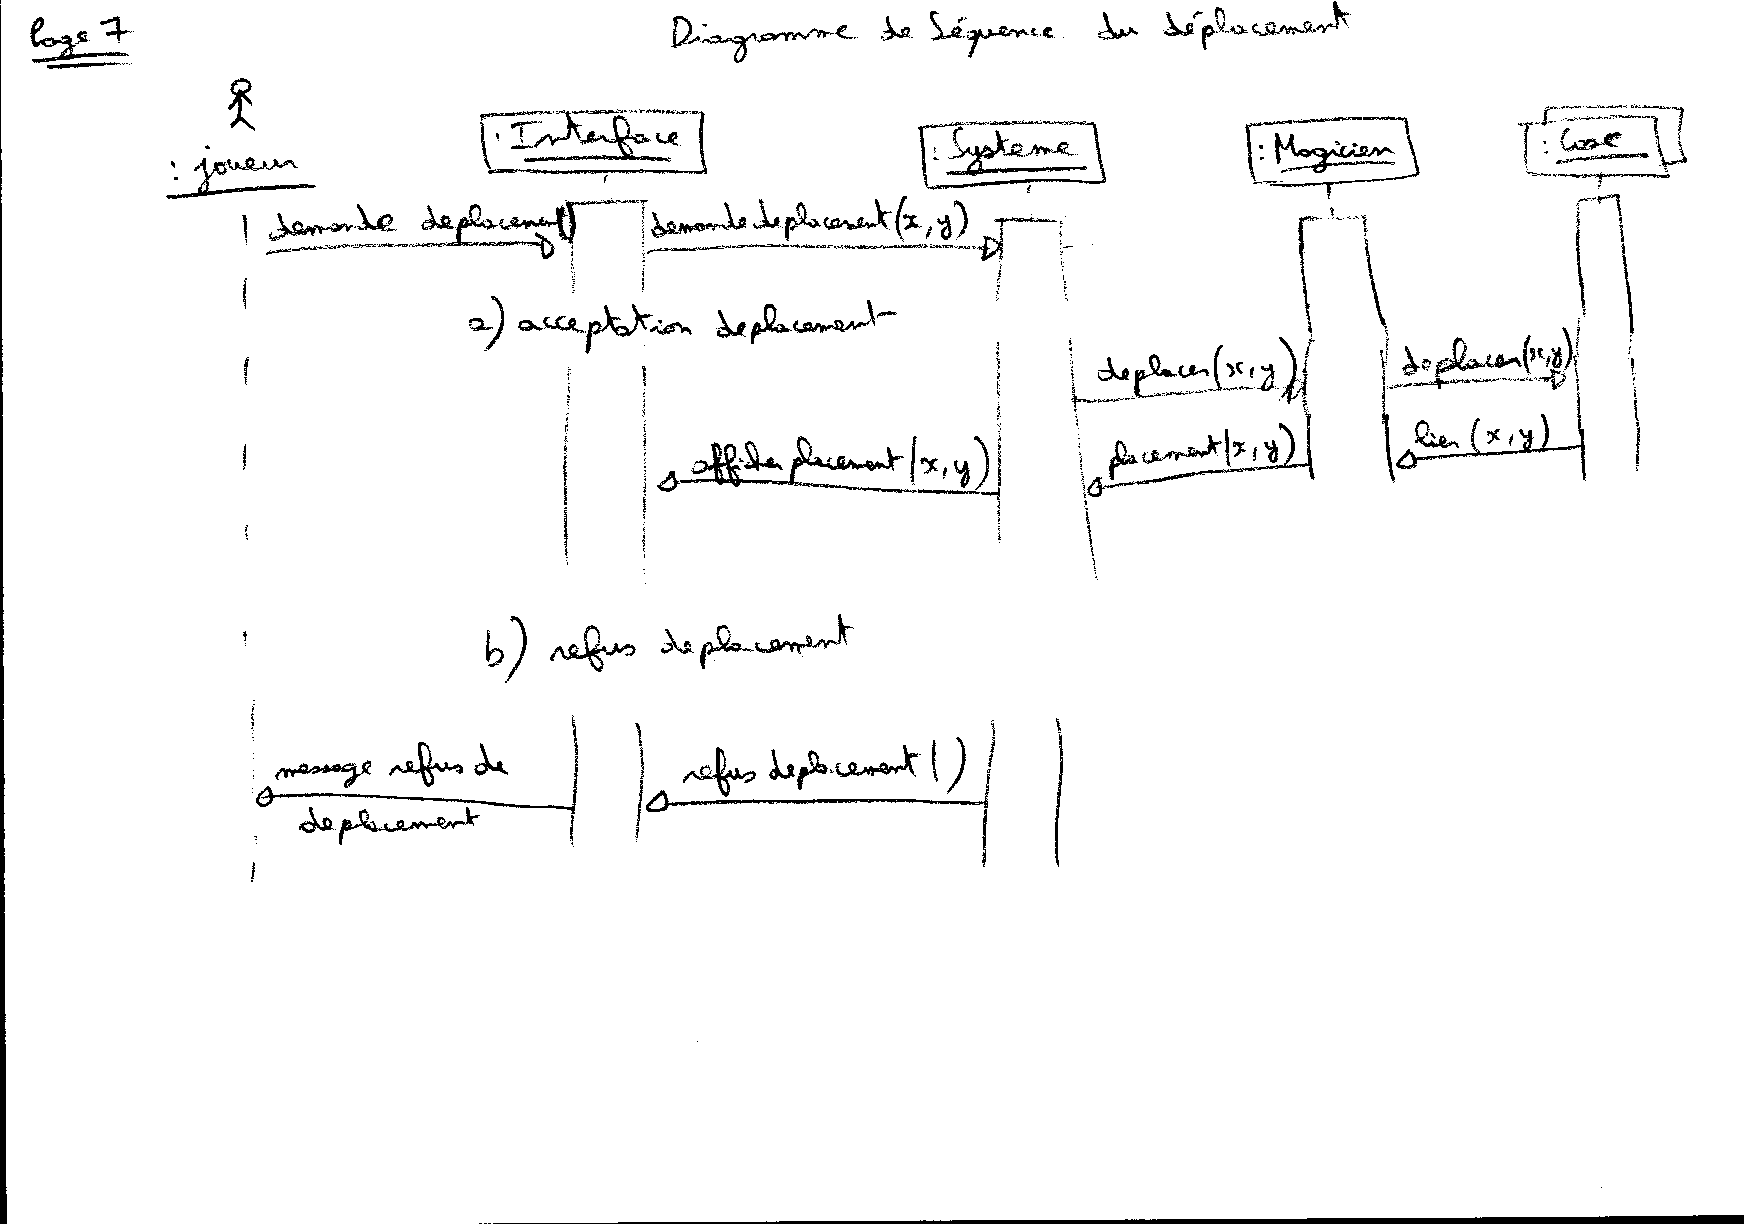 Page 7
Diagramme de Séquence du déplacement
: joueur
: Interface
: Systeme
: Magicien
: Case
demande deplacement()
demande deplacement(x, y)
a) acceptation deplacement
deplacer(x, y)
deplacer(x, y)
afficher placement(x, y)
placement(x, y)
lien (x, y)
b) refus deplacement
message refus de
deplacement
refus deplacement()